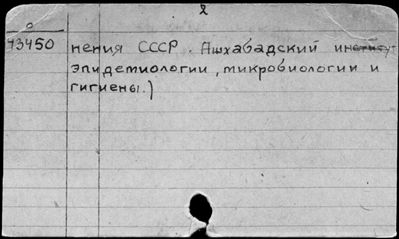 2
93450 нения СССР. Ашхабадский институт
эпидемиологии, микробиологии и
гигиены.)